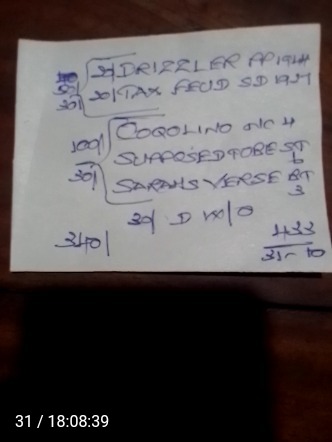 20/ DRIZZLER PP 1944
30/ 20/ TAX FEUD SD 1927
100/ COQOLINO NC 4
SUPPOSEDTOBE ST 6
30/ SARAHS VERSE BT 3
30/ D W/O
340/ 433
31-10
31 / 18:08:39